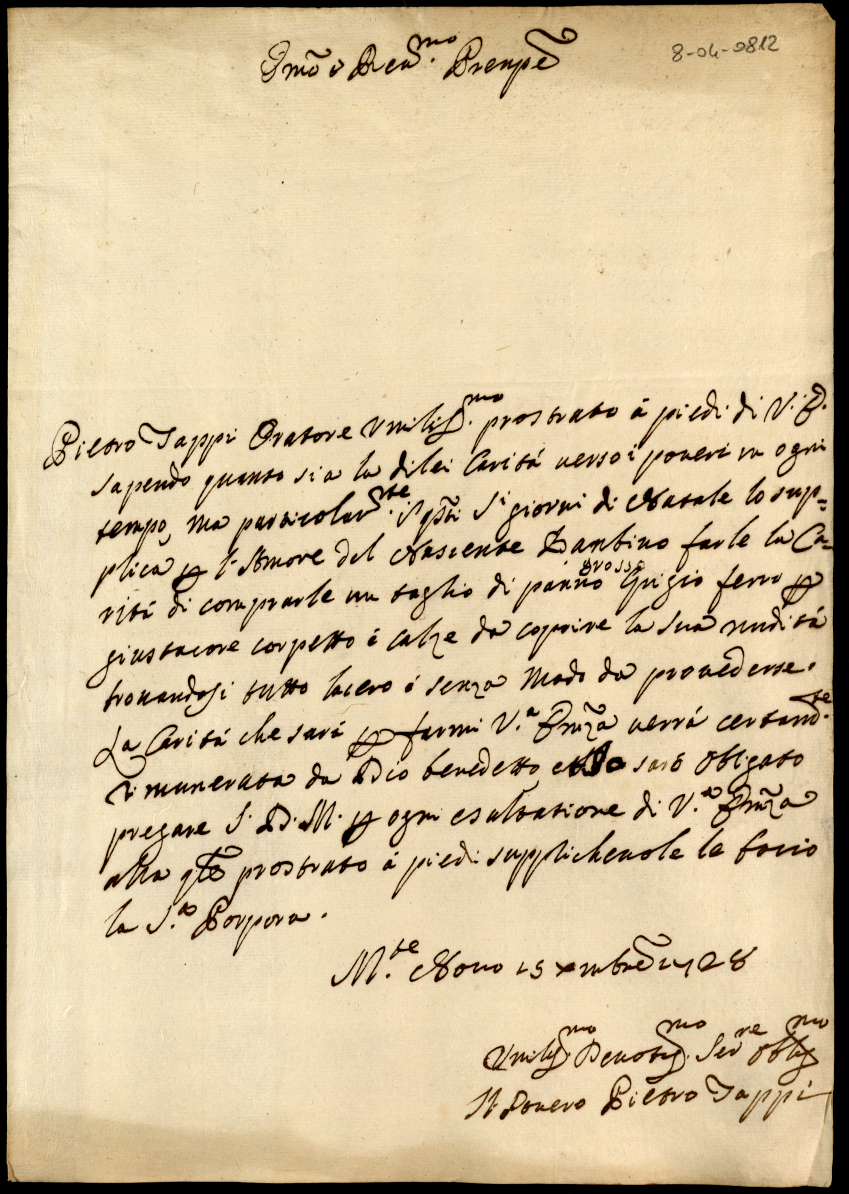 Emõ e Reu.mo Prenpe
8-04-0812
Pietro Tappi Oratore Vmiliss.mo prostrato à piedi di V. E.
sapendo quanto sia la di lei Carità verso i poueri in ogni
tempo, ma particolarm.te i q̃sti S.ti giorni di Natale lo sup=
plica p l'Amore del Nascente Bambino farle la Ca=
rità di comprarle un taglio di panno grosso Grigio ferro p
giustacore corpetto è calze da coprire la sua nudità
trouandosi tutto lacero è senza modo da prouederse.
La Carità che sarà p farmi V.a Emza verrà certam.te
rimunerata da Dio benedetto et Io sarò obligato
pregare S. D. M. p ogni esaltatione di V.a Emza
alla qle prostrato à piedi supplicheuole le bacio
la S.a Porpora.
M.te Nouo 15 xmbre 1728
Vmiliss.mo Deuotiss.mo Ser.re obblig.mo
Il Pouero Pietro Tappi